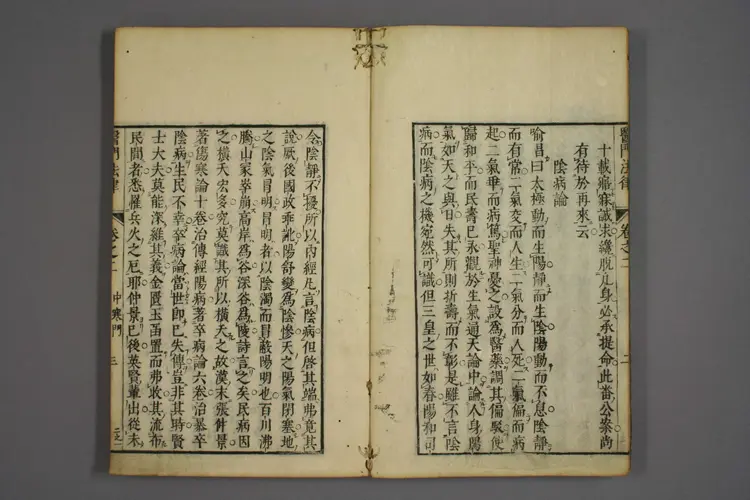 十載寤寐誠求纔脫凡身必承提命此番公案尚
有待於再來云
陰病論
喻昌曰太極動而生陽靜而生陰陽動而不息陰靜
而有常二氣交而人生二氣分而人死二氣偏而病
起二氣乖而病篤聖神憂之設爲醫藥調其偏駁使
歸和平而民壽已永觀於生氣通天論中論人身陽
氣如天之與日失其所則折壽而不彰是雖不言陰
病而陰病之機宛然可識但三皇之世如春陽和司
醫門法律
卷之二
二
令陰靜不擾所以內經凡言陰病但啓其端弗竟其
說厥後國政乖訛陽舒變爲陰慘天之陽氣閉塞地
之陰氣冒明冒明者以陰濁而冒蔽陽明也百川沸
騰山冢崒崩高岸爲谷深谷爲陵詩言之矣民病因
之橫夭宏多究莫識其所以橫夭之故漢末張仲景
著傷寒論十卷治傳經陽病著卒病論六卷治暴卒
陰病生民不幸卒病論當世即已失傳豈非其時賢
士大夫莫能深維其義金匱玉函置而弗收其流布
民間者悉罹兵火之厄耶仲景已後英賢輩出從未
醫門法律
卷之二
中寒門
三